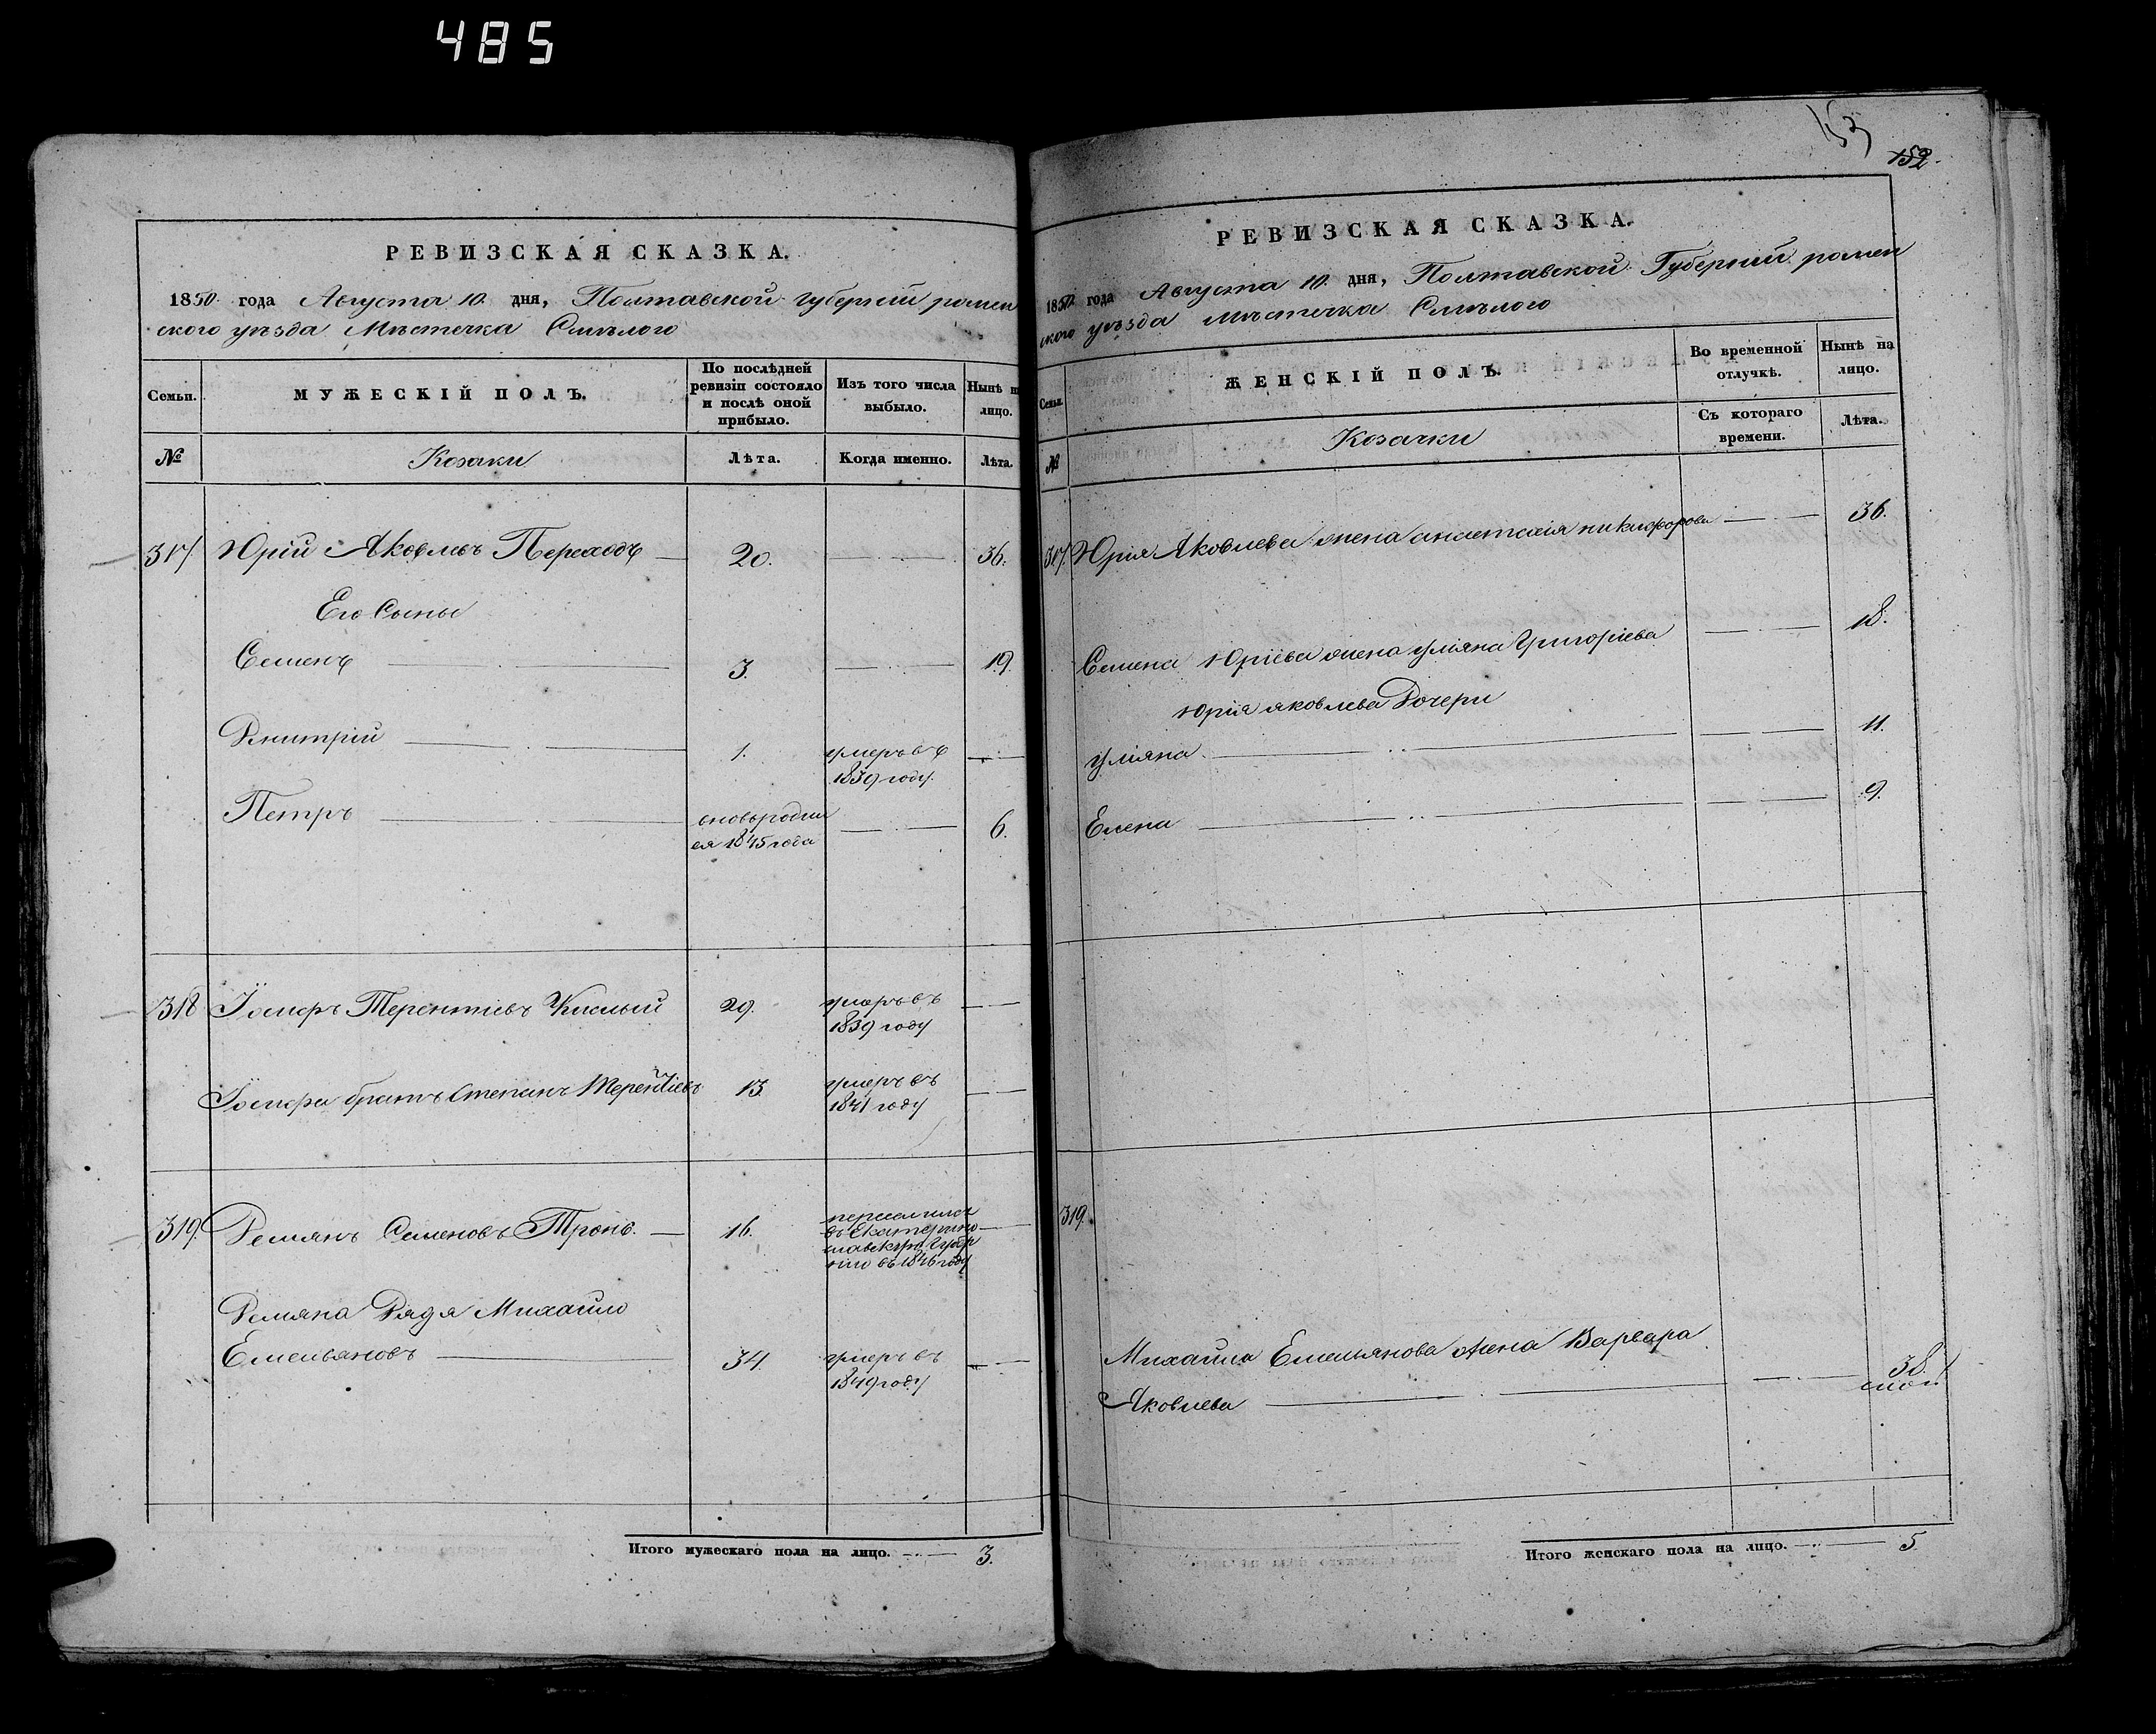 485
РЕВИЗСКАЯ СКАЗКА.
1850 года Августа 10. дня, Полтавской губерніи ромен
ского уѣзда Мѣстечка Смѣлого
Семьи.
МУЖЕСКІЙ ПОЛЪ.
По послѣдней
ревизіи состояло
и послѣ оной
прибыло.
Изъ того числа
выбыло.
Нынѣ н
лицо.
№
Козаки
Лѣта.
Когда именно.
Лѣта.
317 Юрій Яковлевъ Переходъ 20. 36.
Его Сыны
Семенъ 3. 19.
Дмитрій 1. умеръ въ
1839 году.
Петръ вновьродил 6.
ся 1845 года
318 Терентіевъ Кислый 29. умеръ въ
1839 году
братъ Степанъ Терентіевъ 13. умеръ въ
1841 году
319. Демянъ Семеновъ 16. переселился
въ Екатерино
славскую Губер
нію въ 1846 году
Демяна Дядя Михайло
Емельяновъ 34. умеръ въ
1849 году
Итого мужескаго пола на лицо. 3.
153
152.
РЕВИЗСКАЯ СКАЗКА.
1850 года Августа 10. дня, Полтавской Губерніи ромен
ского уѣзда Мѣстечка Смѣлого
Семьи.
ЖЕНСКІЙ ПОЛЪ.
Во временной
отлучкѣ.
Нынѣ на
лицо.
№
Козачки
Съ котораго
времени.
Лѣта.
317. Юрія Яковлева жена анастасія никифорова 36.
Семена Юріева жена уліяна Григоріева 18.
Юрія яковлева Дочери
уліяна 11.
Елена 9.
319.
Михайла Емельянова жена Варвара
Яковлева 38.
Итого женскаго пола на лицо. 5.